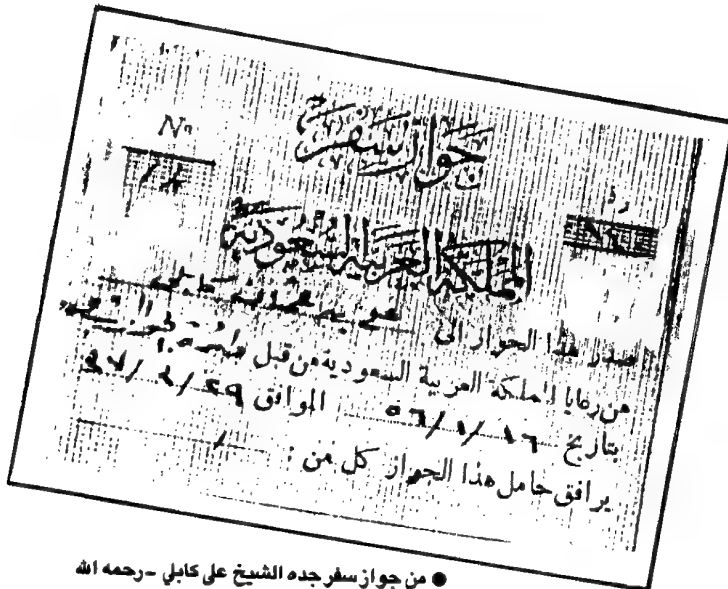 جواز سفر
Nº
المملكة العربية السعودية
صدر هذا الجواز الى علي بن محمد
من رعايا المملكة العربية السعودية من قبل
بتاريخ ١٦/١/٥٦ الموافق ٢٩/٣/٣٧
يرافق حامل هذا الجواز كل من : /
● من جواز سفر جده الشيخ على كابلي - رحمه الله